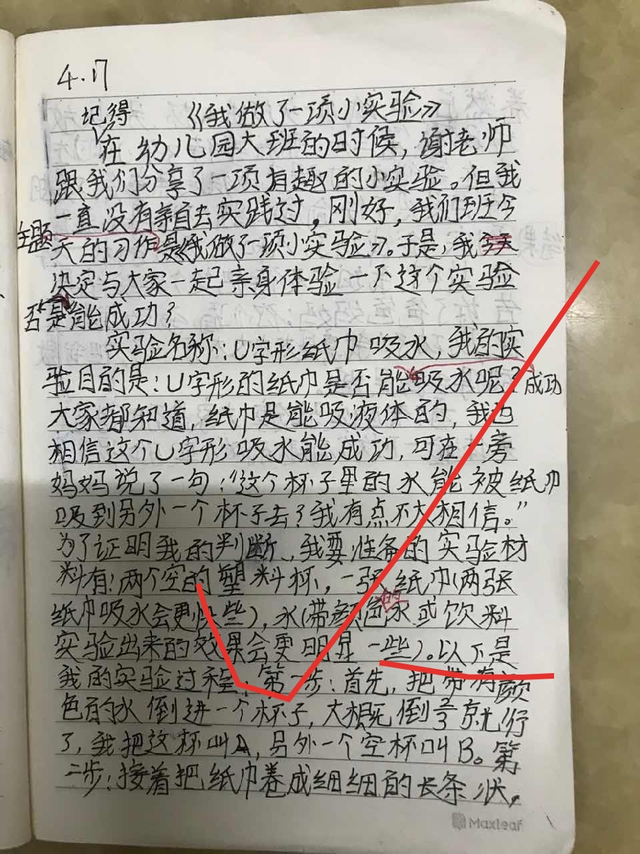 4.17
记得 《我做了一项小实验》
在幼儿园大班的时候，谢老师
跟我们分享了一项有趣的小实验。但我
一直没有亲自去实践过。刚好，我们班今
主题
天的习作是《我做了一项小实验》。于是，我
决定与大家一起亲身体验一下这个实验
是否能成功？
实验名称：U字形纸巾吸水，我的实
验目的是：U字形的纸巾是否能吸水呢？成功
大家都知道，纸巾是能吸液体的，我也
相信这个U字形吸水能成功，可在一旁
妈妈说了一句：“这个杯子里的水能被纸巾
吸到另外一个杯子去？我有点不大相信。”
为了证明我的判断，我要准备的实验材
料有：两个空的塑料杯，一张纸巾（两张
纸巾吸水会更快些），水（带颜色的水或饮料
实验出来的效果会更明显一些）。以下是
我的实验过程：第一步：首先，把带有颜
色的水倒进一个杯子，大概倒2/3就行
了，我把这杯叫A，另外一个空杯叫B。第
二步：接着把纸巾卷成细细的长条状，
Maxleaf